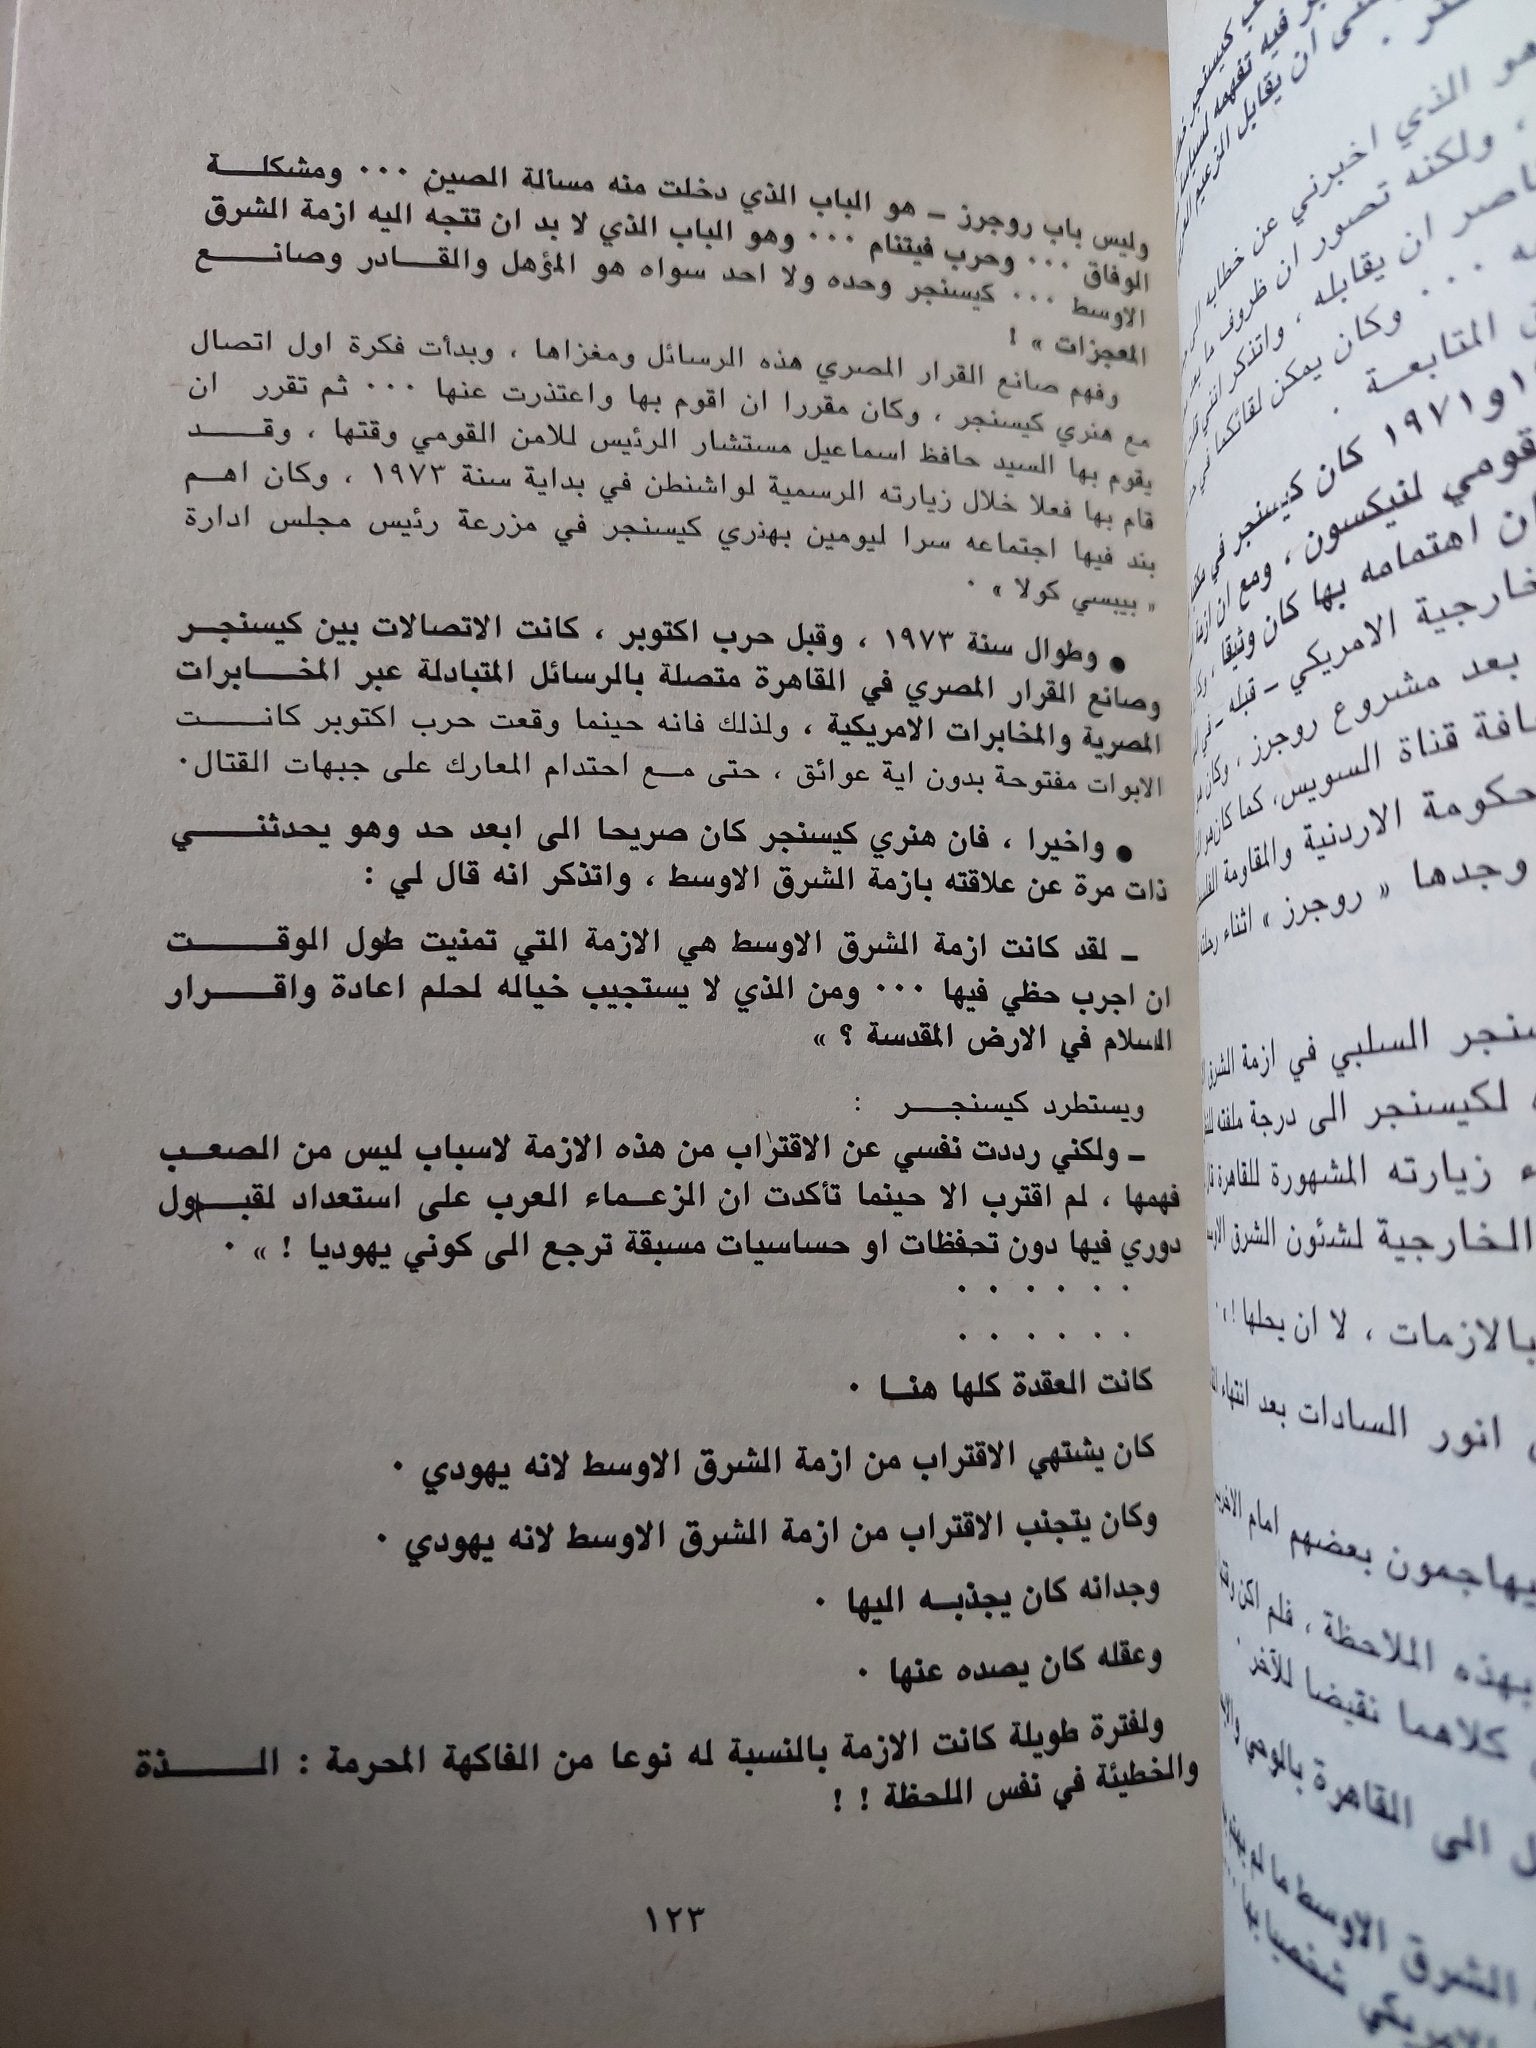 وليس باب روجرز ــ هو الباب الذي دخلت منه مسألة الصين ٠٠٠ ومشكلة
الوفاق ٠٠٠ وحرب فيتنام ٠٠٠ وهو الباب الذي لا بد ان تتجه اليه ازمة الشرق
الاوسط ٠٠٠ كيسنجر وحده ولا احد سواه هو المؤهل والقادر وصانع
المعجزات » !
وفهم صانع القرار المصري هذه الرسائل ومغزاها ، وبدأت فكرة اول اتصال
مع هنري كيسنجر ، وكان مقررا ان اقوم بها واعتذرت عنها ٠٠٠ ثم تقرر ان
يقوم بها السيد حافظ اسماعيل مستشار الرئيس للامن القومي وقتها ، وقد
قام بها فعلا خلال زيارته الرسمية لواشنطن في بداية سنة ١٩٧٣ ، وكان اهم
بند فيها اجتماعه سرا ليومين بهنري كيسنجر في مزرعة رئيس مجلس ادارة
« بيبسي كولا » ٠
● وطوال سنة ١٩٧٣ ، وقبل حرب اكتوبر ، كانت الاتصالات بين كيسنجر
وصانع القرار المصري في القاهرة متصلة بالرسائل المتبادلة عبر المخابرات
المصرية والمخابرات الامريكية ، ولذلك فانه حينما وقعت حرب اكتوبر كانت
الابوات مفتوحة بدون اية عوائق ، حتى مع احتدام المعارك على جبهات القتال٠
● واخيرا ، فان هنري كيسنجر كان صريحا الى ابعد حد وهو يحدثني
ذات مرة عن علاقته بازمة الشرق الاوسط ، واتذكر انه قال لي :
ــ لقد كانت ازمة الشرق الاوسط هي الازمة التي تمنيت طول الوقت
ان اجرب حظي فيها ٠٠٠ ومن الذي لا يستجيب خياله لحلم اعادة واقرار
السلام في الارض المقدسة ؟ »
ويستطرد كيسنجر :
ــ ولكني رددت نفسي عن الاقتراب من هذه الازمة لاسباب ليس من الصعب
فهمها ، لم اقترب الا حينما تأكدت ان الزعماء العرب على استعداد لقبول
دوري فيها دون تحفظات او حساسيات مسبقة ترجع الى كوني يهوديا ! » ٠
٠ ٠ ٠ ٠ ٠ ٠
٠ ٠ ٠ ٠ ٠ ٠
كانت العقدة كلها هنا ٠
كان يشتهي الاقتراب من ازمة الشرق الاوسط لانه يهودي ٠
وكان يتجنب الاقتراب من ازمة الشرق الاوسط لانه يهودي ٠
وجدانه كان يجذبه اليها ٠
وعقله كان يصده عنها ٠
ولفترة طويلة كانت الازمة بالنسبة له نوعا من الفاكهة المحرمة : اللذة
والخطيئة في نفس اللحظة ! !
١٢٣
هو الذي اخبرني عن خطابه
، ولكنه تصور ان ظروف
ان يقابله ، واتذكر انني
٠٠٠ وكان يمكن للقائكما
المتابعة ٠
و١٩٧١ كان كيسنجر في
لنيكسون ، ومع ان
اهتمامه بها كان وثيقا ،
الامريكي ــ قبله ــ
بعد مشروع روجرز ، وكان
قناة السويس، كما كان
الاردنية والمقاومة
وجدها « روجرز » اثناء
السلبي في ازمة الشرق
لكيسنجر الى درجة ملفتة
زيارته المشهورة للقاهرة
الخارجية لشئون الشرق
بالازمات ، لا ان يحلها !
انور السادات بعد انتهاء
يهاجمون بعضهم امام
بهذه الملاحظة ، فلم اكن
كلاهما نقيضا للآخر ٠
الى القاهرة بالوحي
الشرق الاوسط ما لم